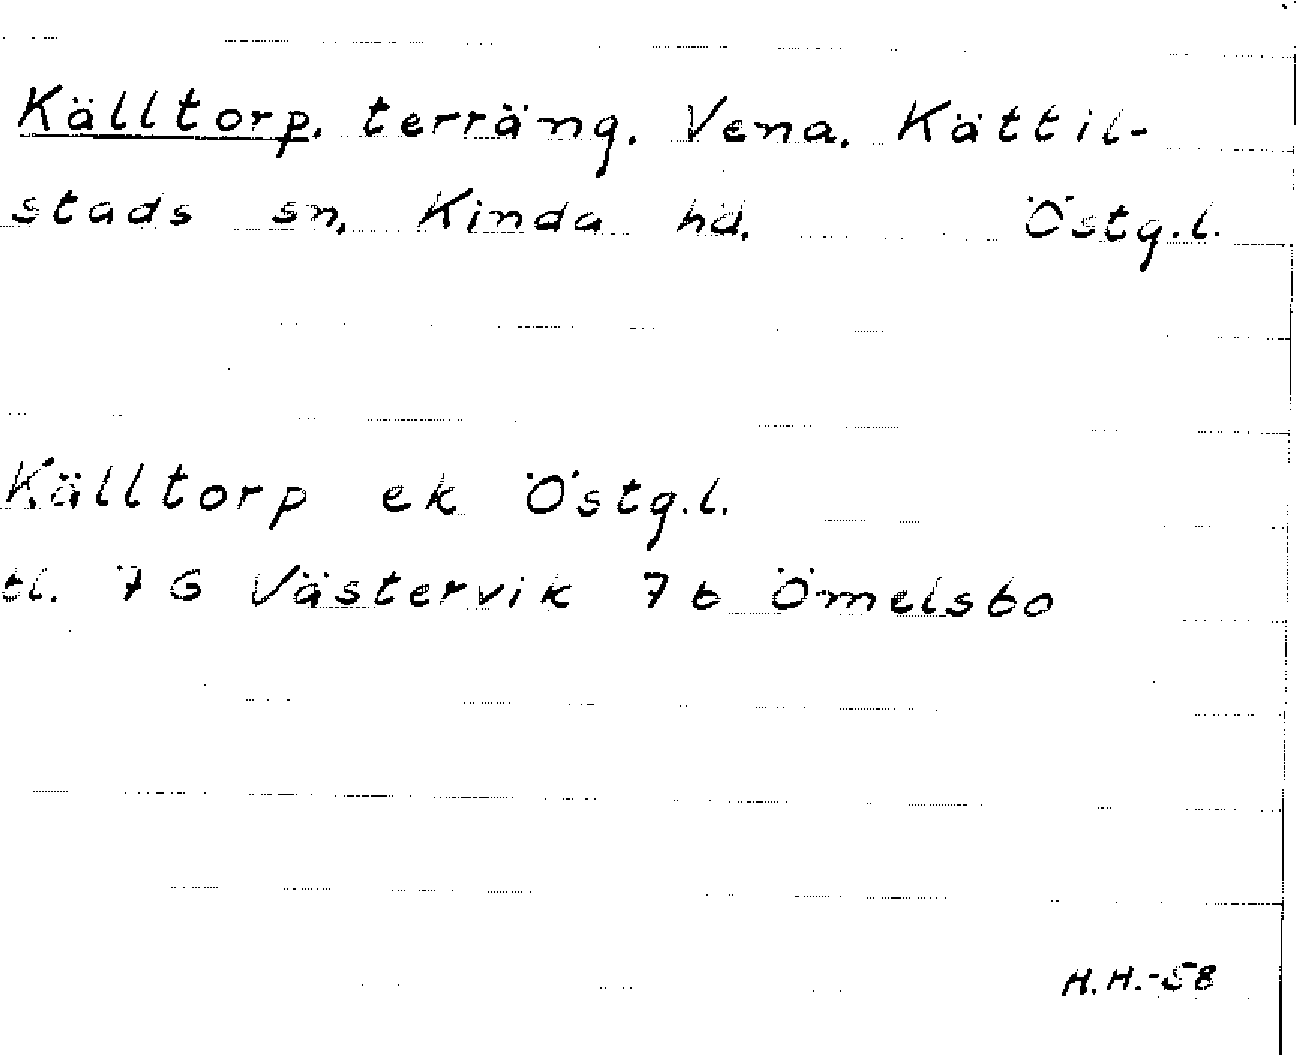 Källtorp. terräng. Vena. Kättil-
stads sn. Kinda hd. Östg.l.
Källtorp ek Östg.l.
tl. 7 G Västervik 7 b Ömelsbo
H.H.-58